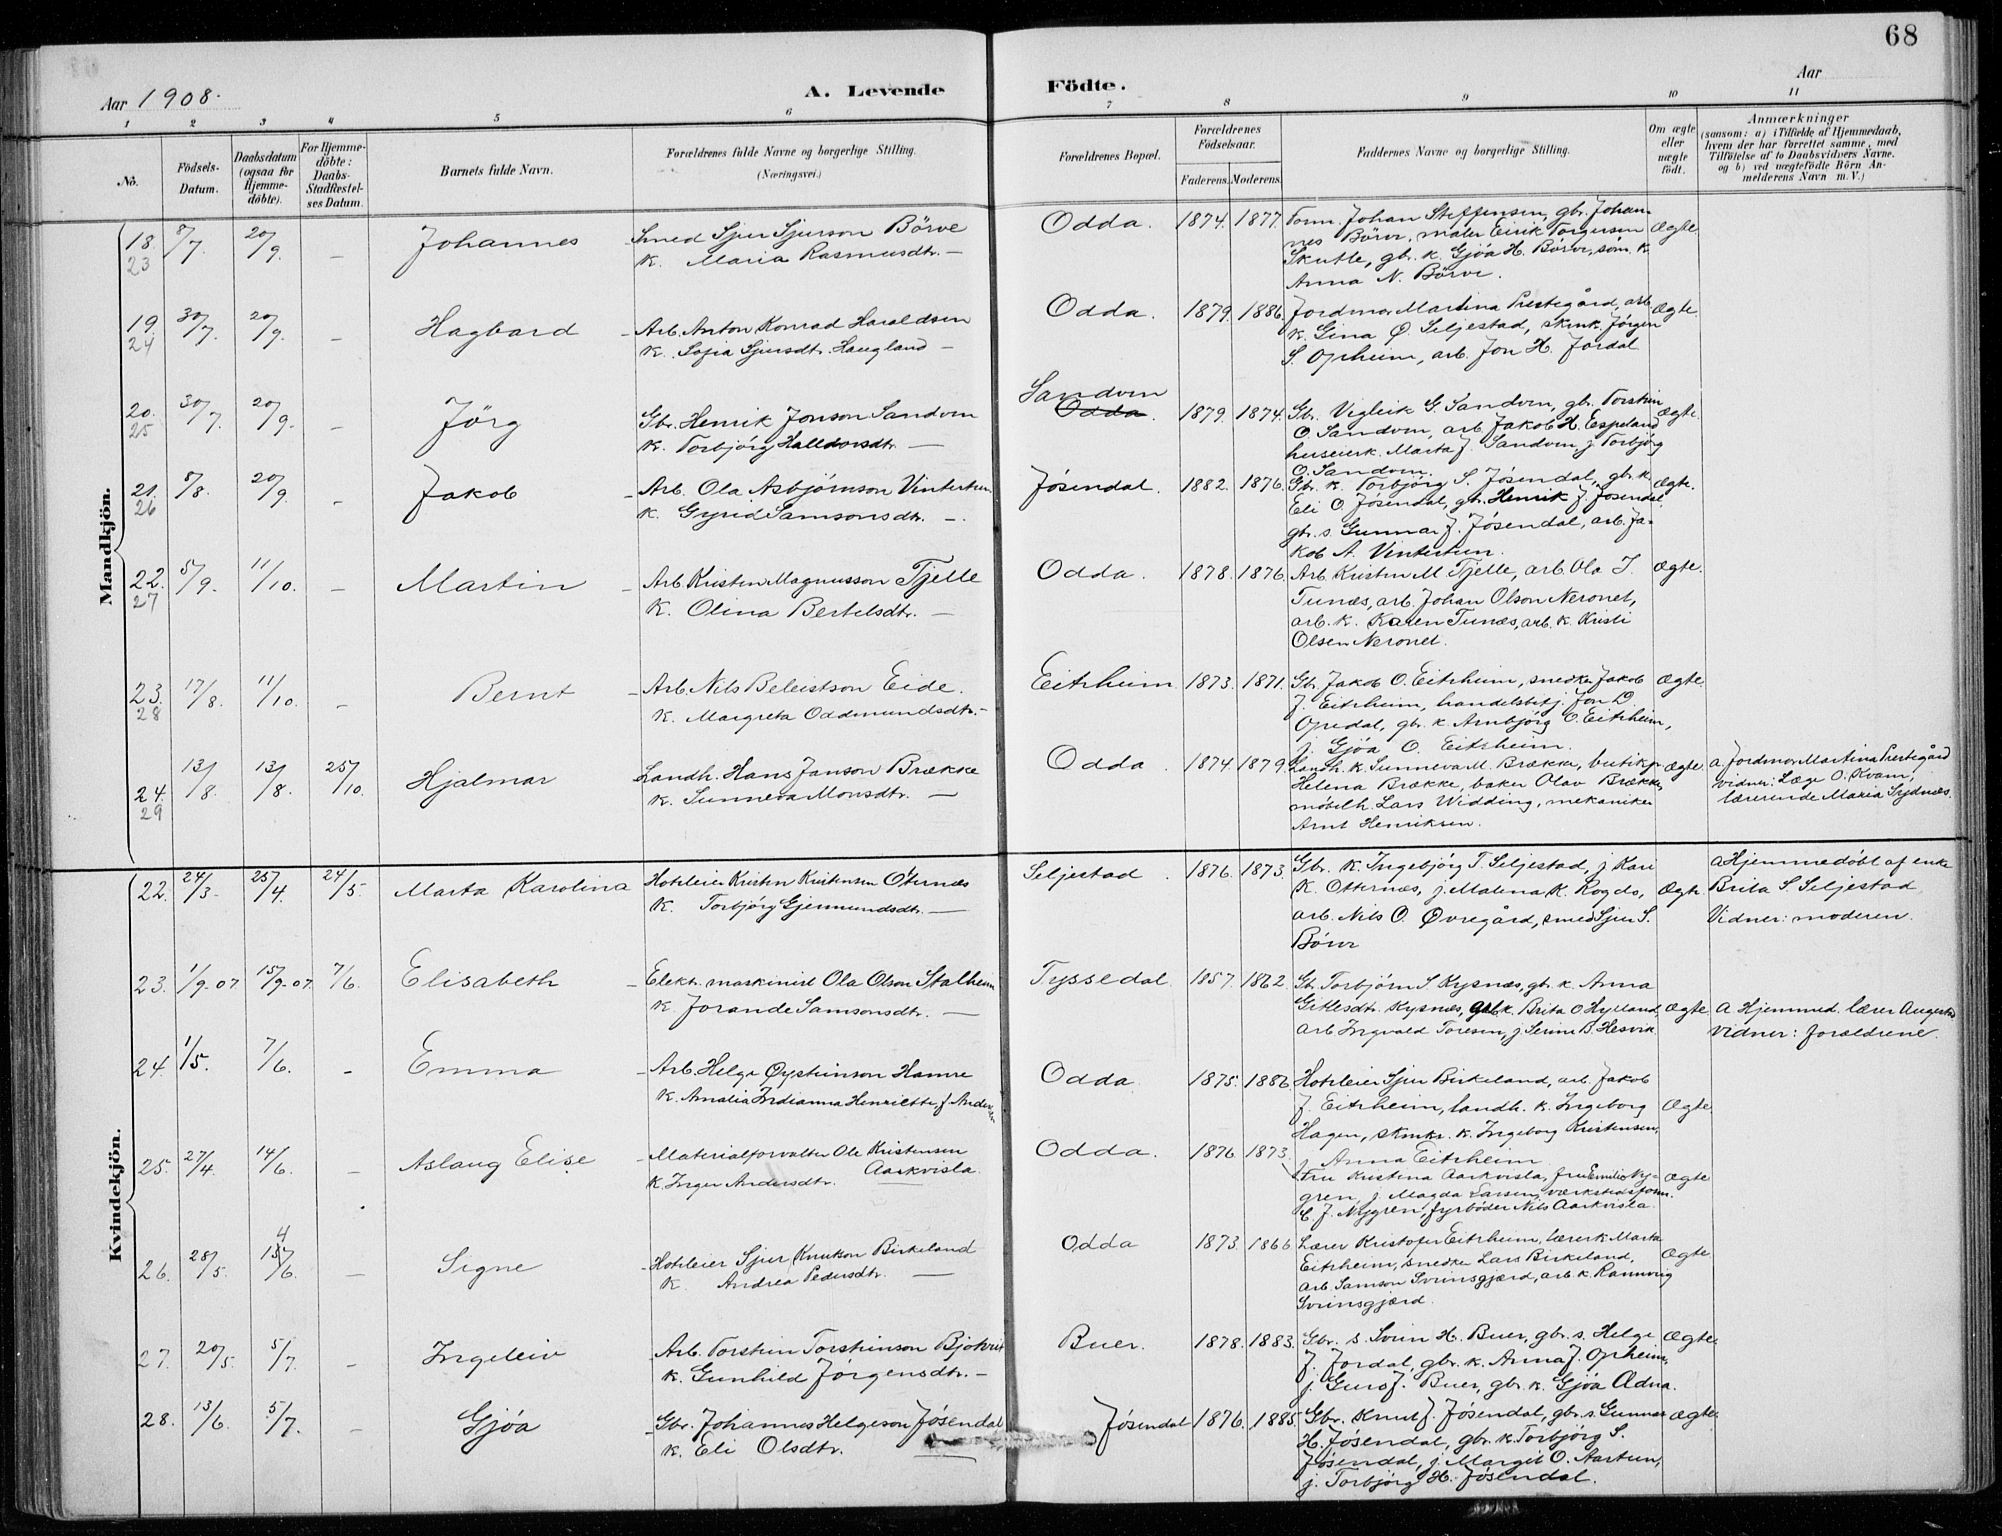 68
Aar 1908.
A. Levende
Födte.
Aar
1 2 3 4 5 6 7 8 9 10 11
No.
Födsels-Datum.
Daabsdatum (ogsaa for Hjemme-döbte).
For Hjemme-döbte: Daabs-Stadfæstel-ses Datum.
Barnets fulde Navn.
Forældrenes fulde Navne og borgerlige Stilling. (Næringsvei.)
Forældrenes Bopæl.
Forældrenes Födselsaar.
Faderens. Moderens.
Faddernes Navne og borgerlige Stilling.
Om ægte eller uægte födt.
Anmærkninger
(saasom: a) i Tilfælde af Hjemmedaab,
hvem der har forrettet samme, med
Tilföielse af to Daabsvidners Navne.
og b) ved uægtefödte Börn An-
melderens Navn m. V.)
Mandkjön.
18. 23 8/7 20/9. – Johannes
Smed Sjur Sjurson Börve
K. Maria Rasmusdtr. –
Odda. 1874. 1877.
Form. Johan Steffensen, gbr. Johan-
nes Börve, maler Eirik Torgersen
Skutle, gbr. k. Gjöa H. Börve, söm. k.
Anna N. Börve.
Ægte.
19. 24 30/7. 20/9. – Hagbard
Arb. Anton Konrad Haraldsen
K. Sofia Sjursdtr. Haugland –
Odda. 1879. 1886.
Jordmor Martina Prestegård, arb.
k. Gina Ø. Seljestad, skmk. Jörgen
S. Opheim, arb. Jon H. Jordal
Ægte.
20. 25 30/7. 20/9. – Jörg
Gbr. Henrik Jonson Sandven
K. Torbjörg Halldorsdtr. –
Sandven
Odda. 1879. 1874.
Gbr. Vigleik G. Sandven, gbr. Torstein
O. Sandven, arb. Jakob H. Espeland
huseierk. Marta J. Sandven, j. Torbjörg
O. Sandven.
Ægte.
21. 26 5/8. 20/9. – Jakob
Arb. Ola Asbjörnson Vintertun
K. Gyrid Samsonsdtr. –
Jösendal. 1882. 1876.
Gbr. k. Torbjörg S. Jösendal, gbr. k.
Eli O. Jösendal, gbr. Henrik J. Jösendal,
gbr. s. Gunnar J. Jösendal, arb. Ja-
kob A. Vintertun.
Ægte.
22. 27 5/9. 11/10. – Martin
Arb. Kristen Magnusson Tjelle
K. Olina Bertelsdtr. –
Odda. 1878. 1876.
Arb. Kristen M. Tjelle, arb. Ola J.
Tunæs, arb. Johan Olson Neronet,
arb. k. Karen Tunæs, arb. k. Kristi
Olsen Neronet.
Ægte.
23. 28 17/8. 11/10. – Bernt
Arb. Nils Beleistson Eide.
K. Margreta Oddmundsdtr. –
Eitrheim 1873. 1871.
Gbr. Jakob O. Eitrheim, snedker Jakob
J. Eitrheim, handelsbetj. Jon D.
Opedal, gbr. k. Arnbjörg O. Eitrheim,
j. Gjöa O. Eitrheim.
Ægte.
24. 29 13/8. 13/8. 25/10. Hjalmar
Landh. Hans Janson Brække
K. Sunneva Monsdtr. –
Odda 1874. 1879.
Landh. k. Sunneva M. Brække, butikj.
Helena Brække, baker Olav Brække,
möbelh. Lars Widding, mekaniker
Arnt Henriksen.
Ægte.
a. Jordmor Martina Prestegård
Vidner: Læge O. Kvam,
lærerinde Maria Sydnæs.
Kvindekjön.
22. 24/3. 25/4. 24/5. Marta Karolina
Hoteleier Kristen Kristensen Oternæs
K. Torbjörg Gjermundsdtr. –
Seljestad. 1876. 1873.
Gbr. k. Ingebjörg T. Seljestad, j. Kari
K. Otternæs, j. Malena K. Rogde,
arb. Nils O. Øvregård, smed Sjur S.
Börve
Ægte.
a Hjemmedöbt af enke
Brita S. Seljestad
Vidner: moderen.
23. 1/9-07 15/9-07. 7/6. Elisabeth
Elektr. maskinist Ola Olson Stalheim
K. Jorande Samsonsdtr. –
Tyssedal 1857. 1862.
Gbr. Torbjörn S. Kysnæs, gbr. k. Anna
Gitlesdtr. Kysnæs, gbr. k. Brita O. Hylland,
arb. Ingvald Toresen, j. Serine B. Hesvik
Ægte
a Hjemmed. lærer Augestad
Vidner: forældrene.
24. 1/5. 7/6. – Emma
Arb. Helge Øysteinson Hamre
K. Amalia Indianna Henriette f. Andersen
Odda 1875. 1886.
Hoteleier Sjur Birkeland, arb. Jakob
J. Eitrheim, landh. k. Ingeborg
Hagen, skmkr. k. Ingeborg Kristensen,
j. Anna Eitrheim
Ægte
25. 27/4. 14/6. – Aslaug Elise
Materialforvalter Ole Kristensen
Aarkvisla.
K. Inger Andersdtr.
Odda. 1876 1873.
Fru Kristina Aarkvisla, fru Emilie Ny-
gren, j. Magda Larsen, værkstedsform.
C. J. Nygren, fyrböder Nils Aarkvisla.
Ægte
26. 28/5. 4 15/6. – Signe
Hoteleier Sjur Knutson Birkeland
K. Andrea Pedersdtr. –
Odda 1873. 1866
Lærer Kristofer Eitrheim, lærerk. Marta
Eitrheim, snedker Lars Birkeland,
arb. Samson Sveinsgjærd, arb. k. Rannveig
Sveinsgjærd.
Ægte
27. 20/5. 5/7. – Ingeleiv
Arb. Torstein Torsteinson Bjotveit
K. Gunhild Jörgensdtr. –
Buer. 1878. 1883.
Gbr. s. Svein H. Buer, gbr. s. Helge
J. Jordal, gbr. k. Anna J. Opheim,
j. Guro J. Buer, gbr. k. Gjöa Ædna.
Ægte
28. 13/6. 5/7. – Gjöa
Gbr. Johannes Helgeson Jösendal
K. Eli Olsdtr.
Jösendal 1876. 1885.
Gbr. Knut J. Jösendal, gbr. s. Gunnar
H. Jösendal, gbr. k. Torbjörg S.
Jösendal, j. Margit O. Aartun,
j. Torbjörg H. Jösendal.
Ægte